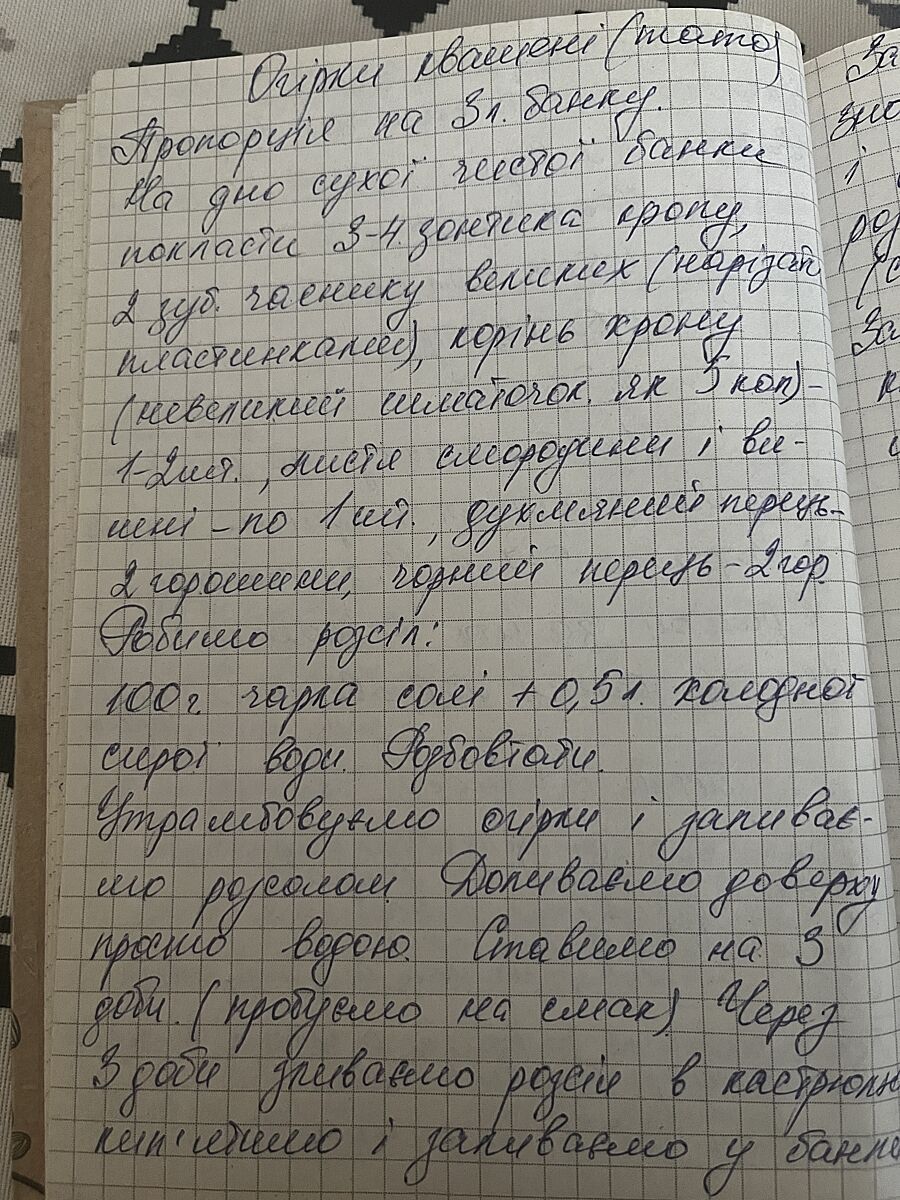 Огірки квашені (тато)
Пропорція на 3л. банку.
На дно сухої чистої банки
покласти 3-4 зонтика кропу,
2 зуб. часнику великих (нарізати
пластинками), корінь хрону
(невеликий шматочок як 5 коп) -
1-2 шт., листя смородини і ви-
шні - по 1 шт., духмяний перець -
2 горошини, чорний перець - 2 гор.
Робимо розсіл:
100 г. чарка солі + 0,5 л. холодної
сирої води. Розбовтати.
Утрамбовуємо огірки і заливає-
мо розсолом. Доливаємо доверху
просто водою. Ставимо на 3
доби. (пробуємо на смак) Через
3 доби зливаємо розсіл в каструлю
кип'ятимо і заливаємо у банки
За
і
За